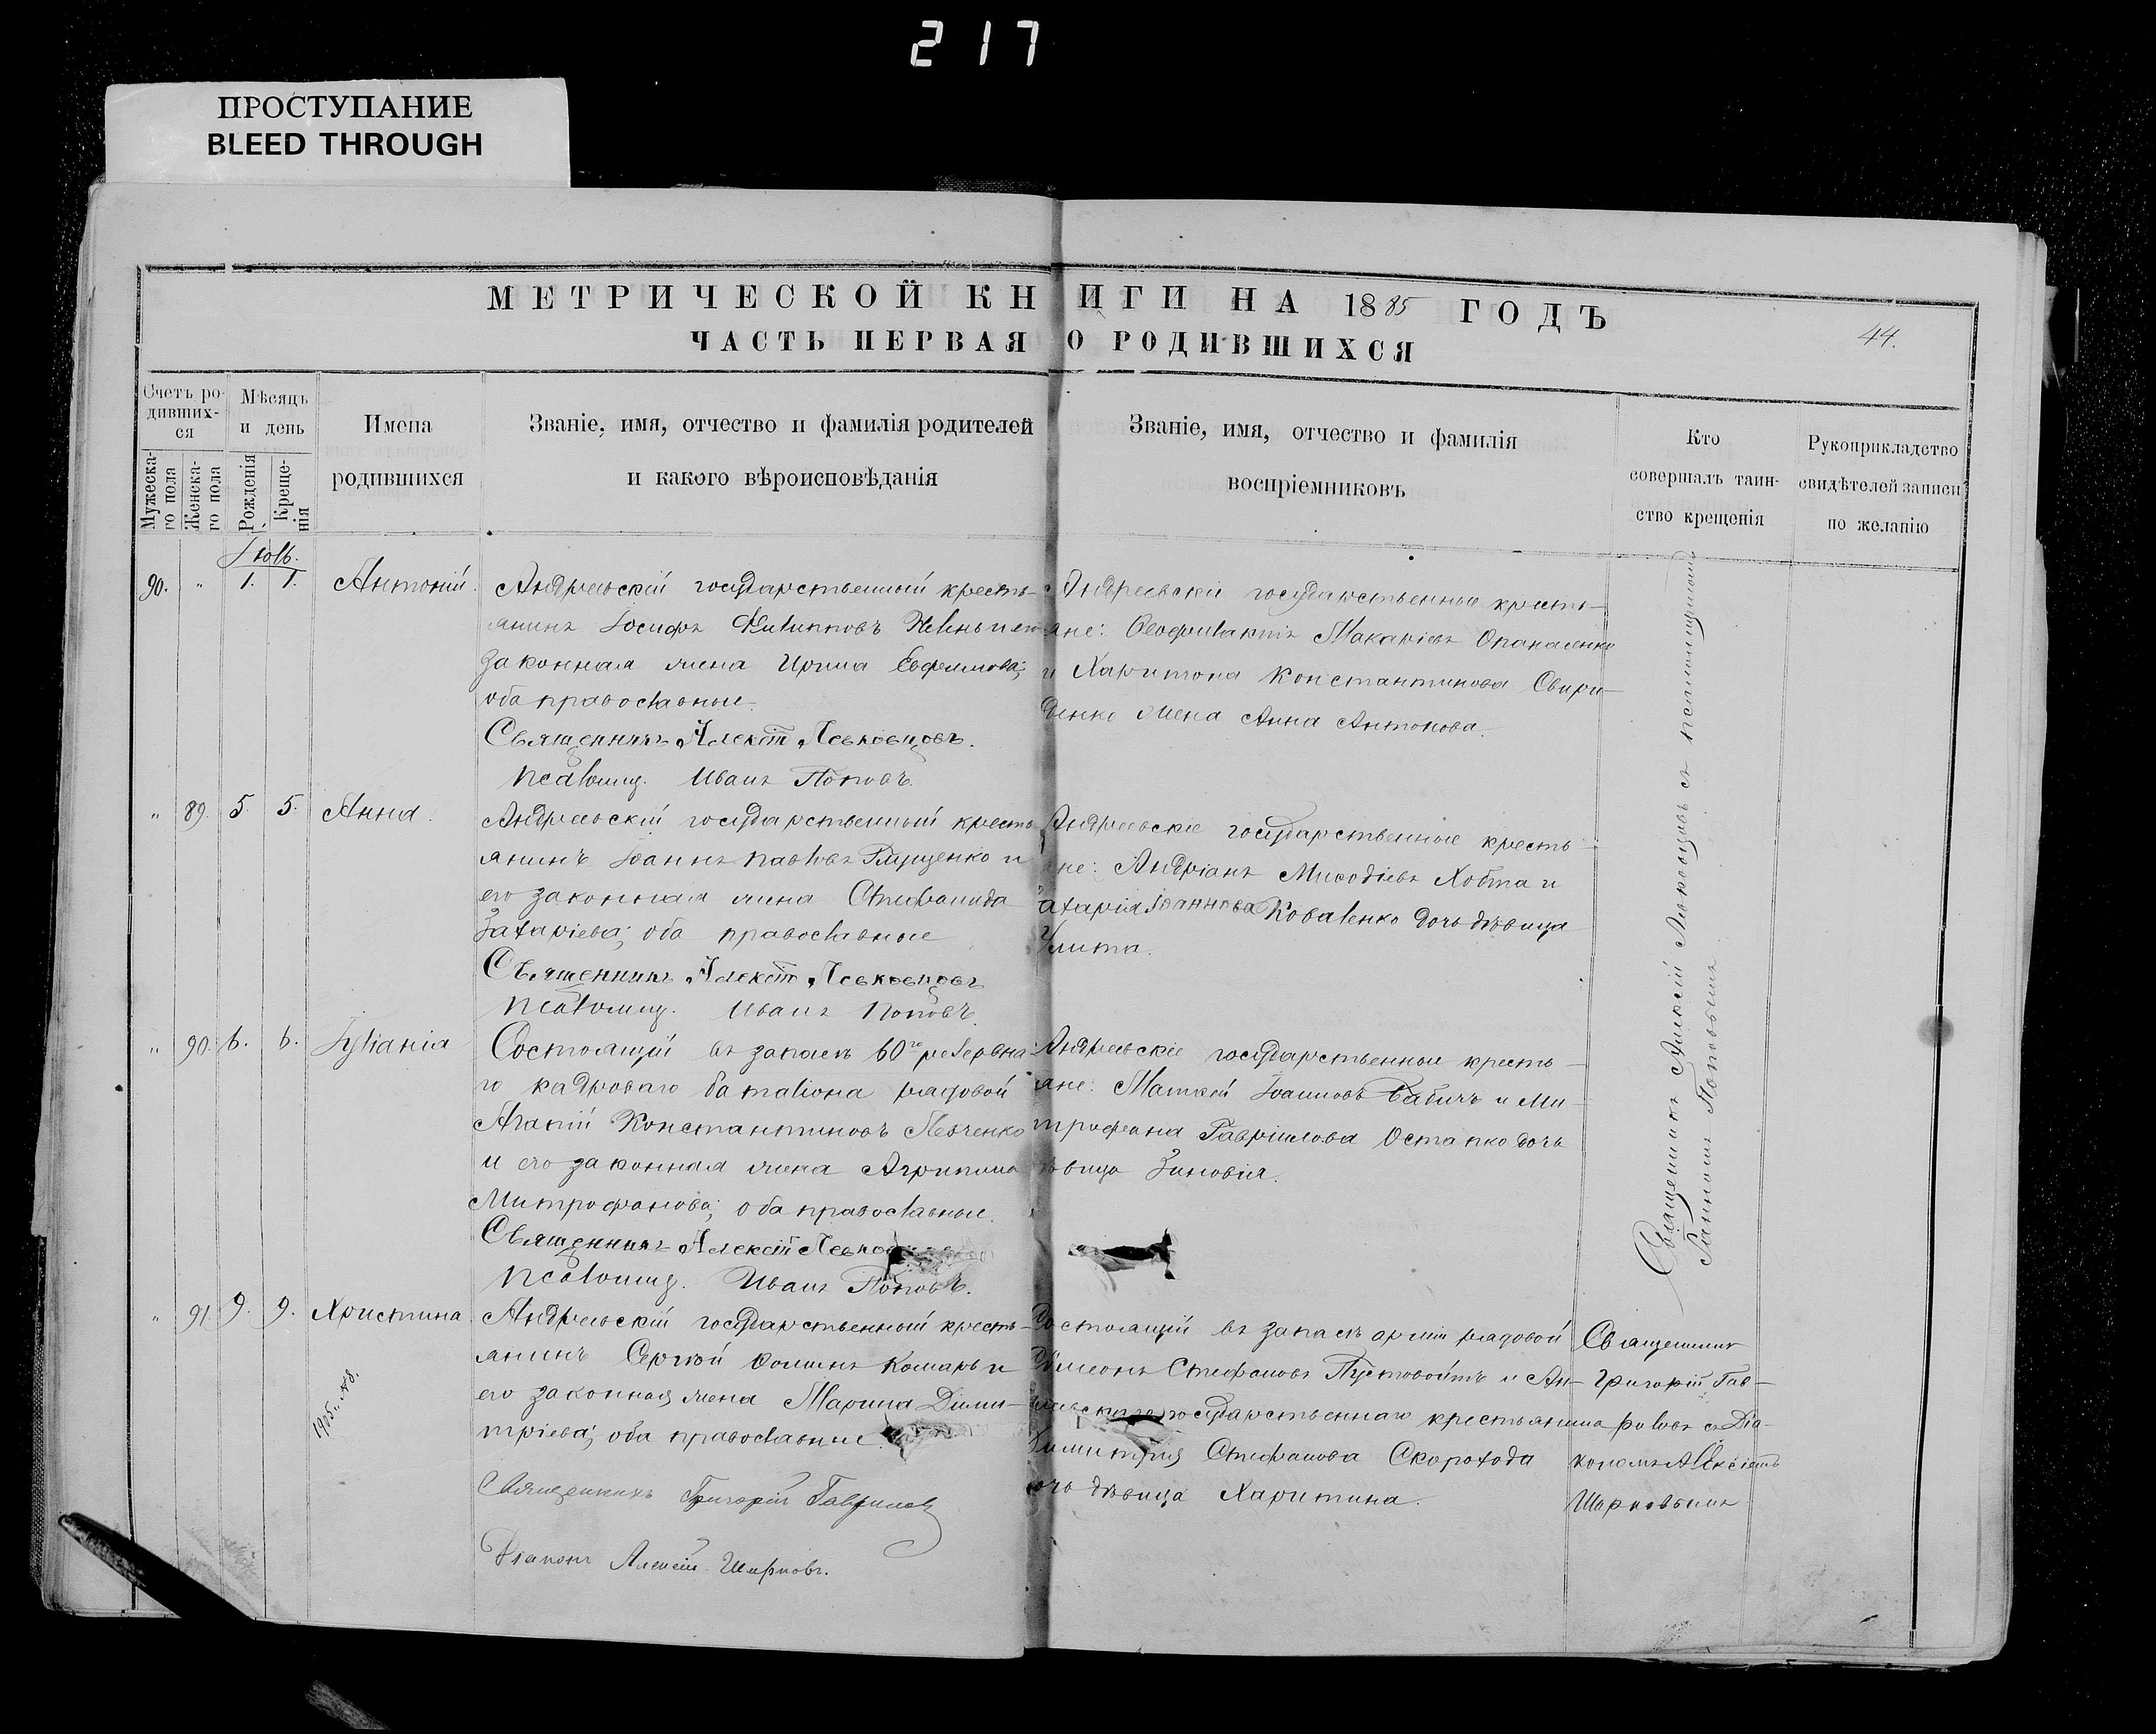 217
ПРОСТУПАНИЕ
BLEED THROUGH
МЕТРИЧЕСКОЙ КНИГИ НА 1885 ГОДЪ
ЧАСТЬ ПЕРВАЯ О РОДИВШИХСЯ
44.
Счетъ ро-
дивших-
ся
Мужеска-
го пола
Женска-
го пола
Мѣсяцъ
и день
Рожденія
Креще-
нія
Имена
родившихся
Званіе, имя, отчество и фамилія родителей
и какого вѣроисповѣданія
Званіе, имя, отчество и фамилія
воспріемниковъ
Кто
совершалъ таин-
ство крещенія
Рукоприкладство
свидѣтелей записи
по желанію
Іюль.
90. " 1. 1. Антоній.
Андреевскій государственный кресть-
янинъ Іосифъ Филипповъ и его
законная жена Ирина Евфимова;
оба православные.
Священникъ Алексій Левковцовъ.
Псаломщ. Иванъ Поповъ.
Андреевскіе государственные кресть-
яне: Ѳеофилактъ Макаріевъ Опанасенко
и Харитона Константинова Свири-
денко жена Анна Антонова.
" 89. 5. 5. Анна.
Андреевскій государственный кресть-
янинъ Іоаннъ Павловъ Глущенко и
его законная жена Стефанида
Захаріева; оба православные
Священникъ Алексій Левковцовъ
Псаломщ. Иванъ Поповъ.
Андреевскіе государственные кресть-
яне: Андріанъ Меѳодіевъ Ховта и
Захарія Іоаннова Коваленко дочь дѣвица
Улита.
" 90. 6. 6. Іуліанія
Состоящій въ запасѣ 60го резервна-
го кадроваго баталіона рядовой
Агапій Константиновъ Левченко
и его законная жена Агрипина
Митрофанова; оба православные.
Священникъ Алексій
Псаломщ. Иванъ Поповъ.
Андреевскіе государственные кресть-
яне: Матѳей Іоанновъ Бабичъ и Ми-
трофана Гавріилова Остапко дочь
дѣвица Зиновія.
Священникъ Алексій Левковцовъ съ псаломщикомъ
Іоанномъ Поповымъ
" 91. 9. 9. Христина
1905. №8.
Андреевскій государственный кресть-
янинъ Сергѣй Ѳоминъ Комаръ и
его законная жена Марина Дими-
тріева; оба православные.
Священникъ Григорій Гавриловъ
Діаконъ Алексій Шарковъ.
Состоящій въ запасѣ арміи рядовой
Симеонъ Стефановъ Пустовойтъ и Ан-
дреевскаго государственнаго крестьянина
Димитрія Стефанова Скорохода
дочь дѣвица Харитина.
Священникъ
Григорій Гав-
риловъ съ Діа-
кономъ Алексіемъ
Шарковымъ